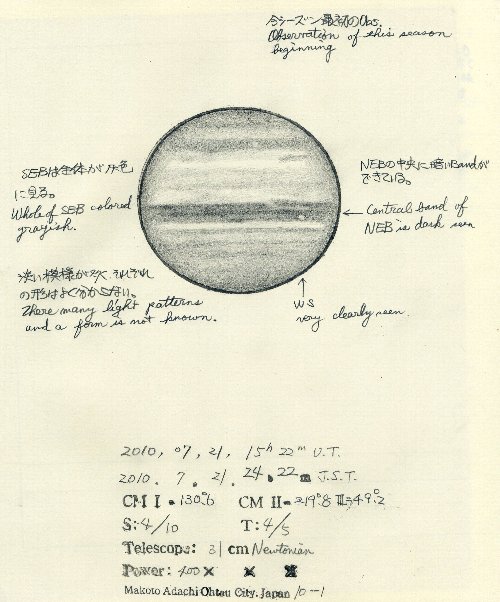 今シーズン最初のObs.
Observation of this season
beginning
SEBは全体が灰色
に見る。
Whole of SEB colored
grayish.
NEBの中央に暗いBandが
できている。
Central band of
NEB is dark seen
淡い模様が多く、それぞれ
の形はよく分からない。
There many light patterns
and a form is not known.
WS
very clearly seen.
2010, 07, 21, 15h 22m U.T.
2010. 7. 21. 24. 22m J.S.T.
CM I = 130.6 CM II = 219.8 III 349.2
S: 4/10 T: 4/5
Telescope: 31 cm Newtonian
Power: 400×
Makoto Adachi Ohtsu City. Japan 10-1